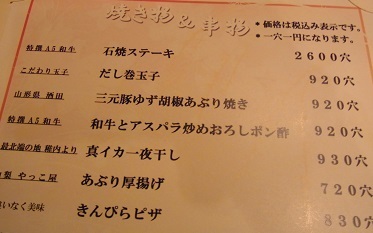 焼き杉&串杉
*価格は税込み表示です。
*一穴一円になります。
特撰A5和牛 石焼ステーキ 2600穴
こだわり玉子 だし巻玉子 920穴
山形県 酒田 三元豚ゆず胡椒あぶり焼き 920穴
特撰A5和牛 和牛とアスパラ炒めおろしポン酢 920穴
最北端の地 稚内より 真イカ一夜干し 930穴
製 やっこ屋 あぶり厚揚げ 720穴
いなく美味 きんぴらピザ 830穴